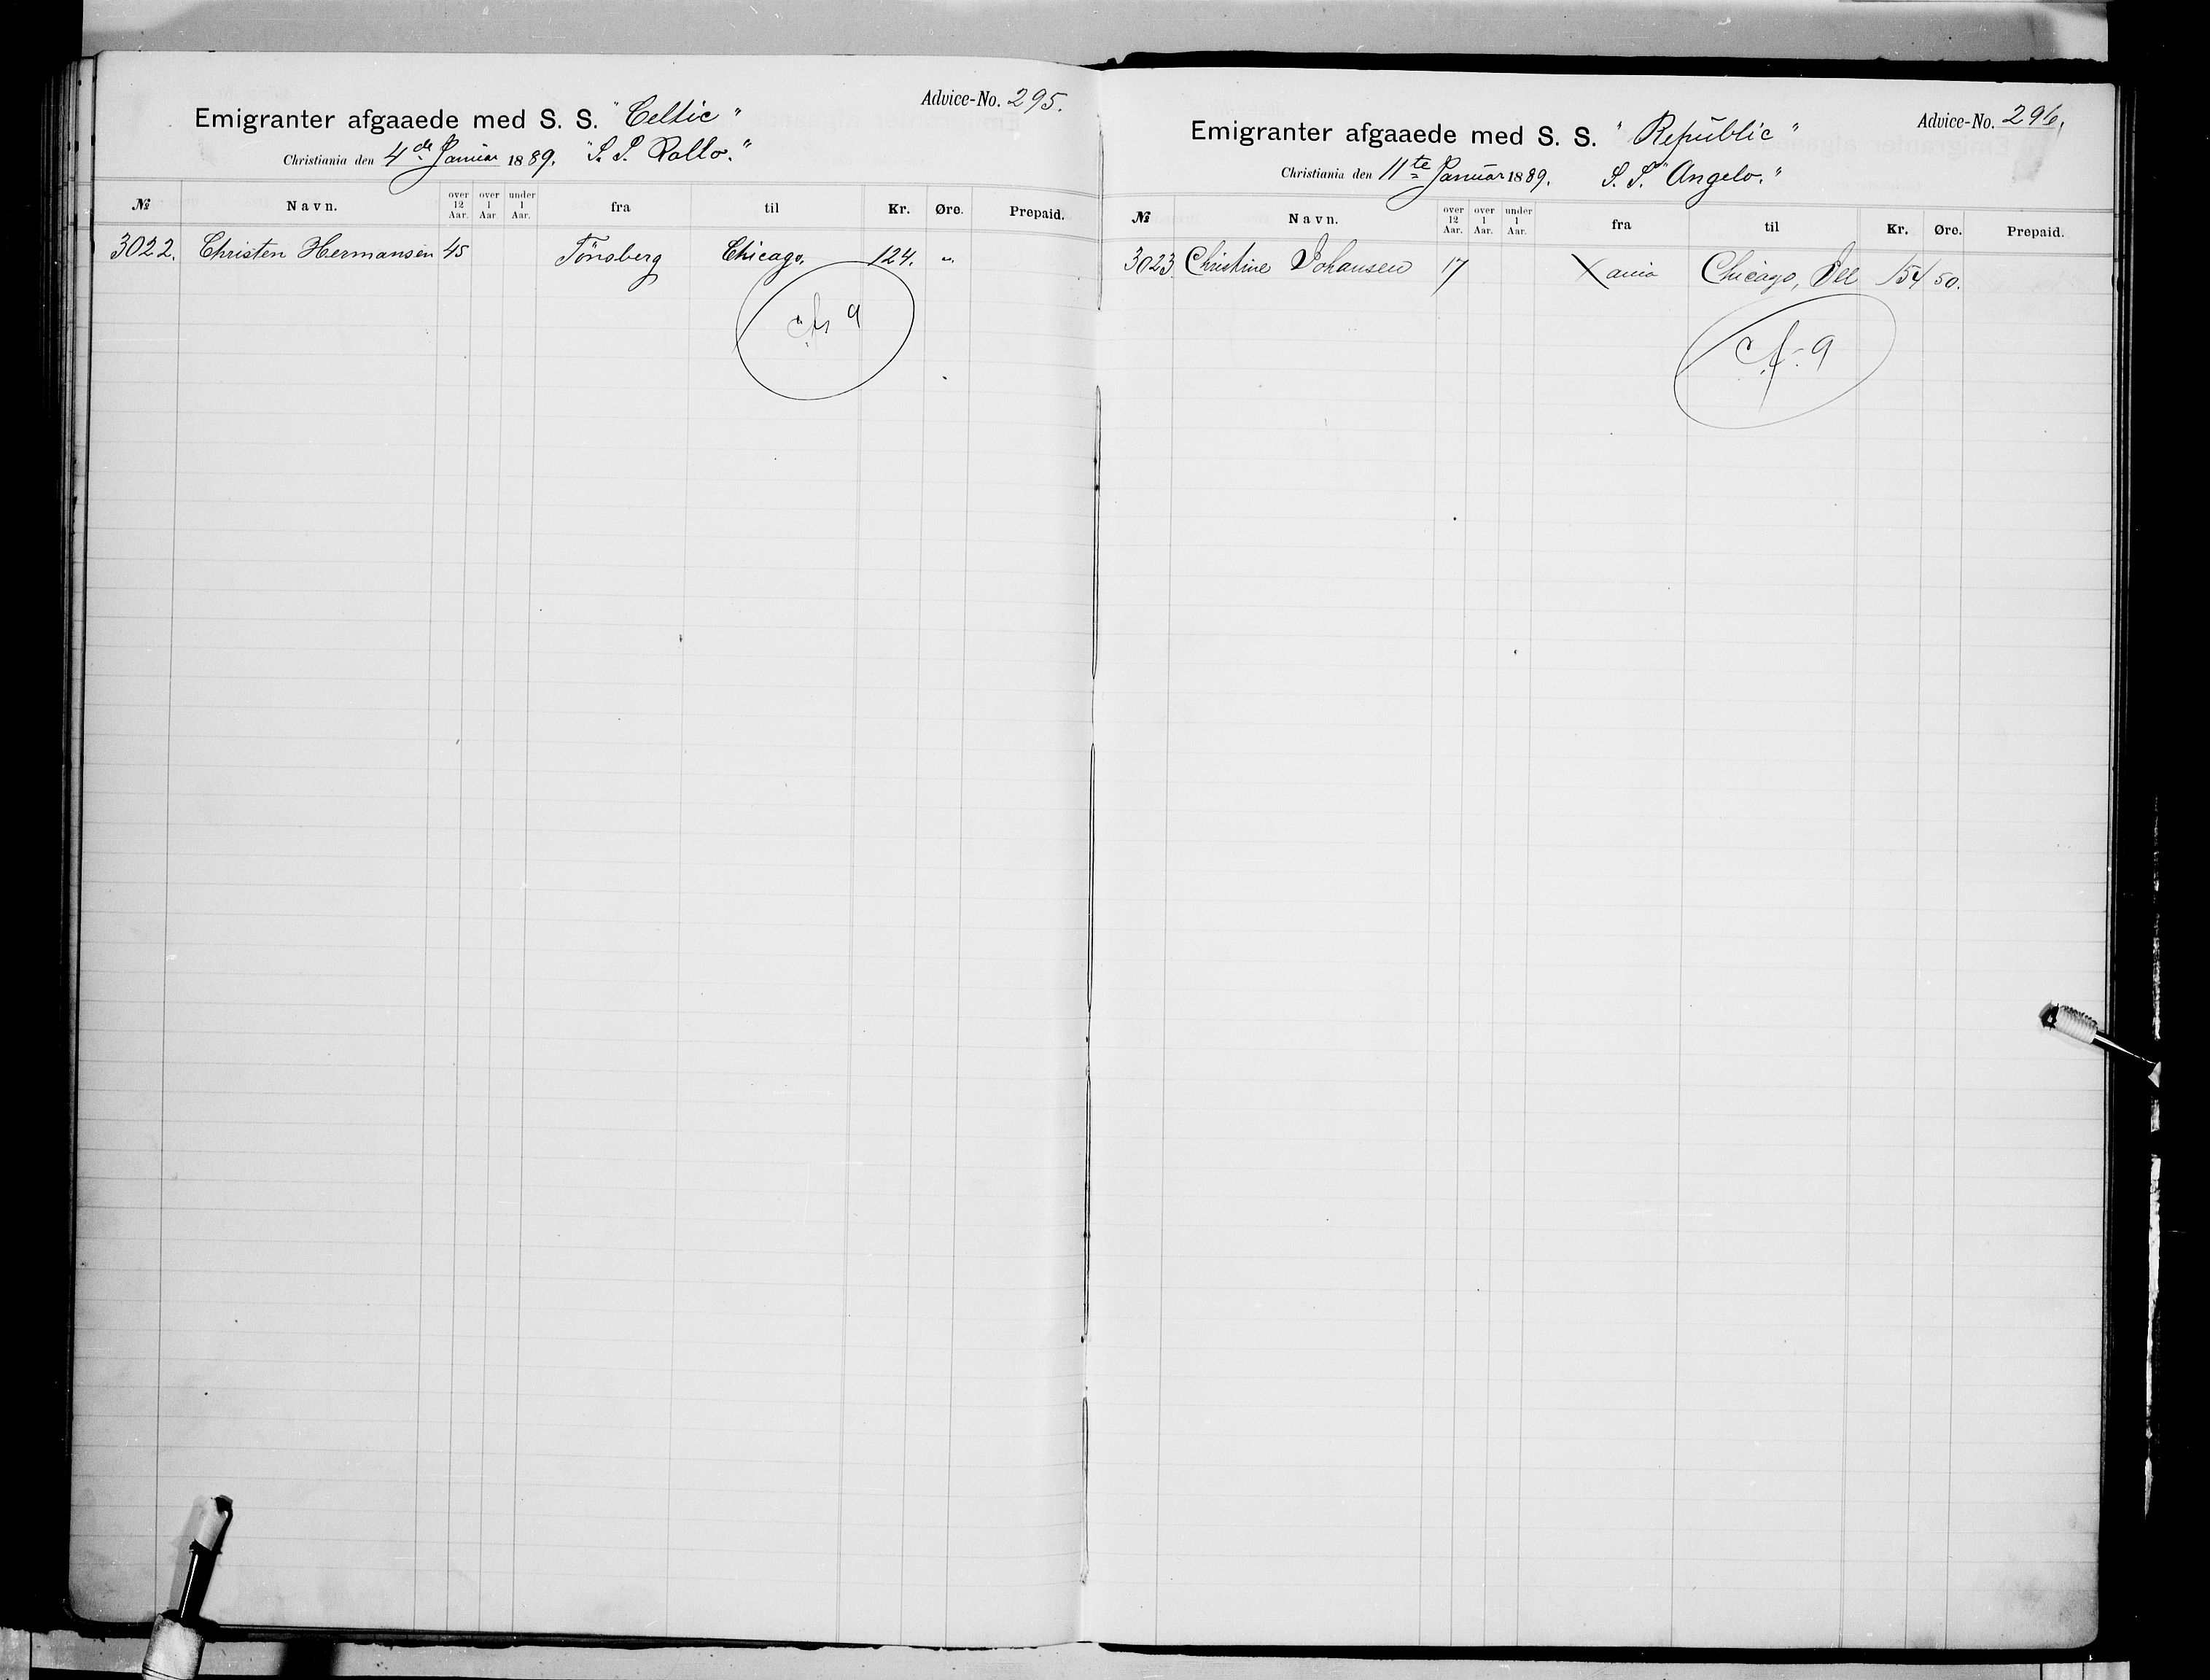 Advice-No. 295.
Emigranter afgaaede med S. S. "Celtic"
Christiania den 4de Januar 1889. "S. S. Rollo."
№ Navn. over 12 Aar. over 1 Aar. under 1 Aar. fra til Kr. Øre. Prepaid.
3022. Christen Hermansen 45 Tönsberg Chicago. 124. "
9
Advice-No. 296.
Emigranter afgaaede med S. S. "Republic"
Christiania den 11te Januar 1889. S. S. "Angelo."
№ Navn. over 12 Aar. over 1 Aar. under 1 Aar. fra til Kr. Øre. Prepaid.
3023 Christine Johansen 17 Xania Chicago, Ill 154 50.
9